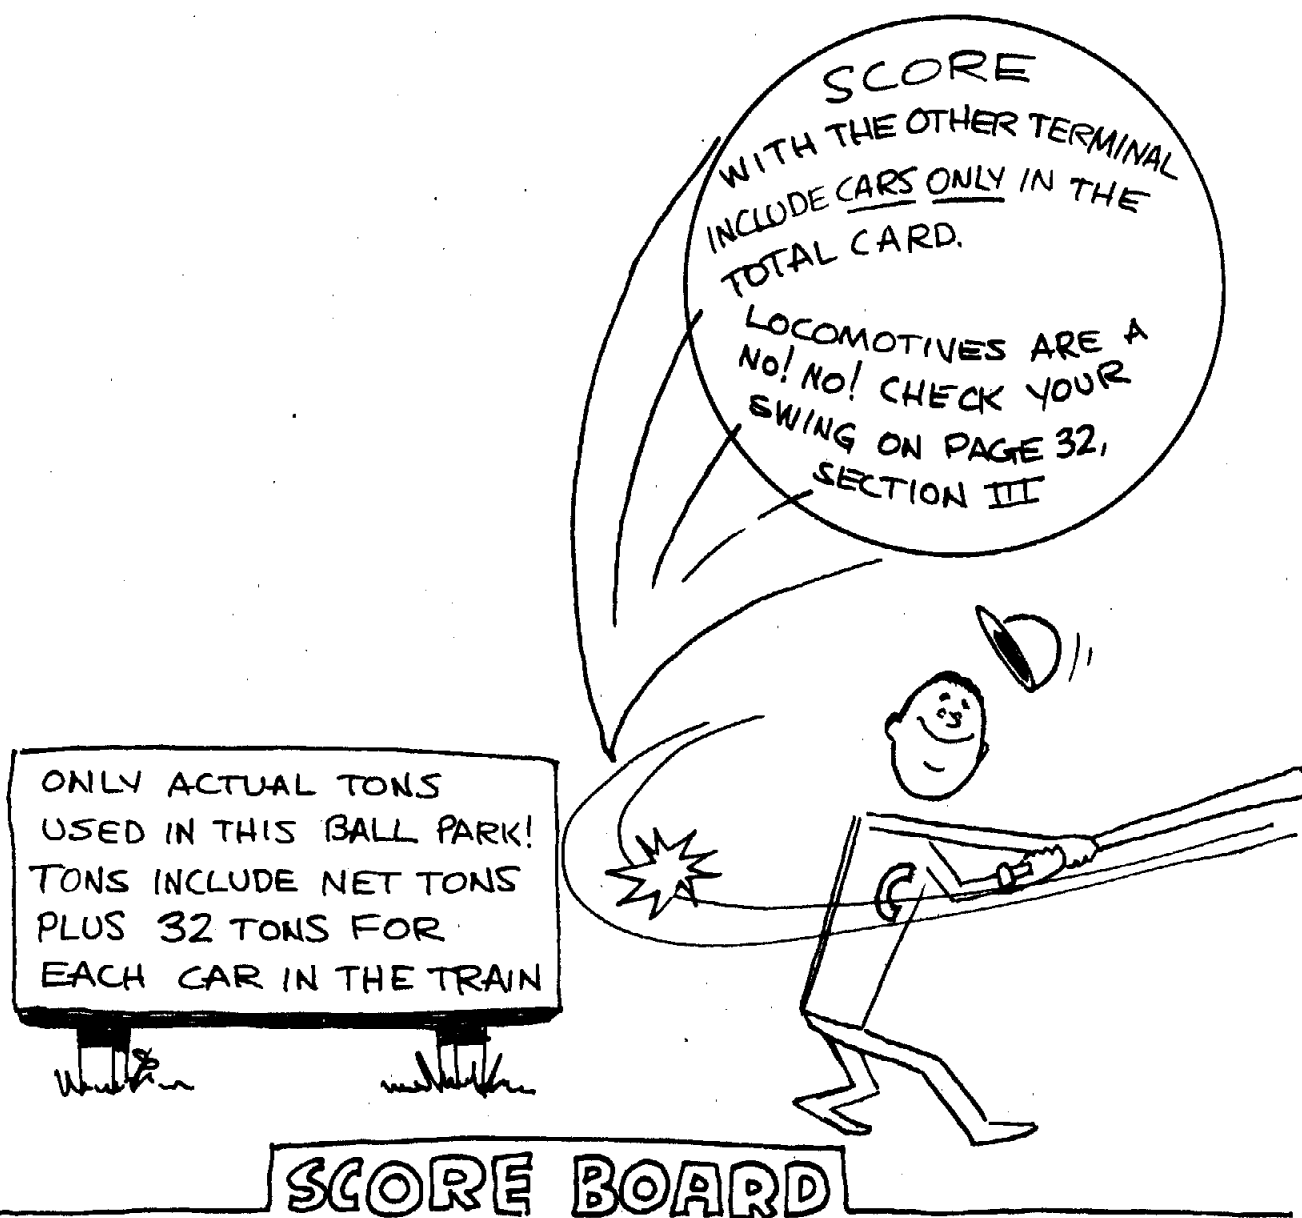 SCORE
WITH THE OTHER TERMINAL
INCLUDE CARS ONLY IN THE
TOTAL CARD.
LOCOMOTIVES ARE A
NO! NO! CHECK YOUR
SWING ON PAGE 32,
SECTION III
ONLY ACTUAL TONS
USED IN THIS BALL PARK!
TONS INCLUDE NET TONS
PLUS 32 TONS FOR
EACH CAR IN THE TRAIN
SCORE BOARD